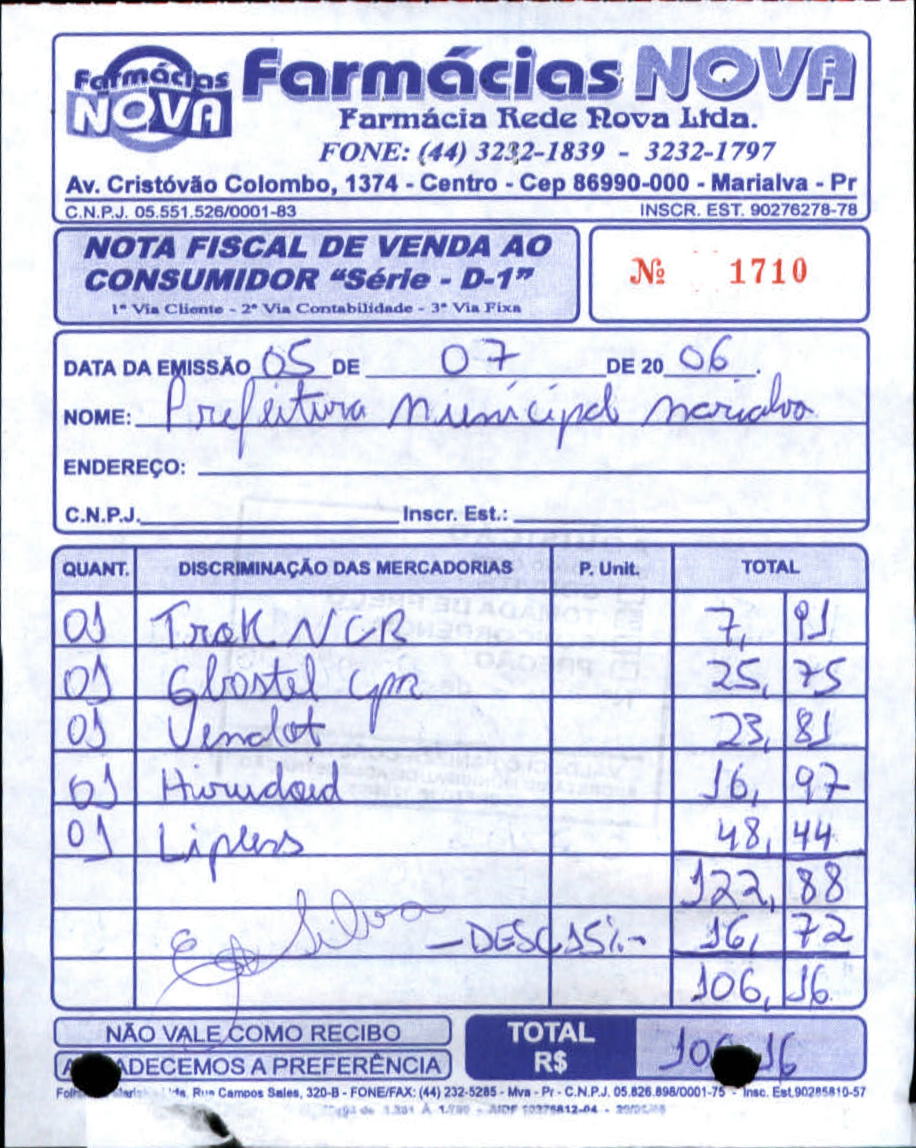 Farmácias NOVA
Farmácias NOVA
Farmácia Rede Nova Ltda.
FONE: (44) 3232-1839 - 3232-1797
Av. Cristóvão Colombo, 1374 - Centro - Cep 86990-000 - Marialva - Pr
C.N.P.J. 05.551.526/0001-83 INSCR. EST. 90276278-78
NOTA FISCAL DE VENDA AO
CONSUMIDOR “Série - D-1”
1ª Via Cliente - 2ª Via Contabilidade - 3ª Via Fixa
Nº 1710
DATA DA EMISSÃO 05 DE 07 DE 20 06.
NOME: Prefeitura Municipal Marialva
ENDEREÇO:
C.N.P.J. Inscr. Est.:
QUANT. DISCRIMINAÇÃO DAS MERCADORIAS P. Unit. TOTAL
01 Trok NCR 7, 91
01 25, 75
01 Venalot 23, 81
01 Hirudoid 16, 97
01 Lipless 48, 44
122, 88
Silva - DESC 15% - 16, 72
106, 16
NÃO VALE COMO RECIBO
TOTAL R$ 106,16
A ADECEMOS A PREFERÊNCIA
Rua Campos Sales, 320-B - FONE/FAX: (44) 232-5285 - Mva - Pr - C.N.P.J. 05.826.898/0001-75 - Insc. Est.90285810-57